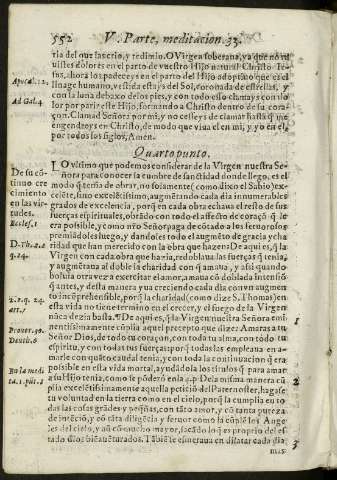 552 V. Parte, meditacion 33.
ria del que las crio, y redimio. O Virgen soberana, ya que no tu
uistes dolores en el parto de vuestro Hijo natural Christo Ie-
sus, ahora los padeceys en el parto del Hijo adoptiuo que es el
Apocal. 12. linage humano, vestida estays del Sol, coronada de estrellas, y
con la luna debaxo de los pies, y con todo esso clamays con do
Ad Gal. 4. lor por parir este Hijo, formando a Christo dentro de su cora-
çon. Clamad Señora por mi, y no cesseys de clamar hasta q̃ me
engendreys en Christo, de modo que viua el en mi, y yo en el,
por todos los siglos, Amen.
Quarto punto.
LO vltimo que podemos considerar de la Virgen nuestra Se-
De su cõ ñora para conocer la cumbre de sanctidad donde llego, es el
tinuo cre modo q̃ tenia de obrar, no solamente (como dixo el Sabio) ex-
cimiento celẽte, sino excelẽtissimo, augmẽtando cada dia innumerables
en las vir grados de excelencia, porq̃ en cada obra echaua el resto de sus
tudes. fuerças spirituales, obrãdo con todo el affecto de coraçõ q̃ le
Eccles. 1 era possible, y como nr̃o Señor paga de cõtado a los feruorosos
premiãdoles luego, y dandoles todo el augmẽto de gracia y cha
D. Th. 2. 2 ridad que han merecido con la obra que hazen: De aqui es, q̃ la
q. 24. Virgen con cada obra que hazia, redoblaua las fuerças q̃ tenia,
y augmẽtaua al doble la charidad con q̃ amaua, y assi quando
boluia otra vez a exercitar el amor, amaua cõ doblada intensiõ
q̃ antes, y desta manera yua creciendo cada dia con vn augmen-
2. 2. q. 24. to incõprehensible, porq̃ la charidad (como dize S. Thomas) en
art. 7 esta vida no tiene termino en el crecer, y el fuego de la Virgen
nũca dezia basta. ¶ De aqui es, q̃ la Virgen nuestra Señora emi- 1
Prouer. 30. nentissimamente cũplia aquel precepto que dize: Amaras a tu
Deut. 6 Señor Dios, de todo tu coraçon, con toda tu alma, con todo tu
espiritu, y con todas tus fuerças: porq̃ todas las empleaua en a-
marle con quãto caudal tenia, y con toda la continuacion q̃ era
possible en esta vida mortal, ayudãdo los titulos q̃ para amar
a su Hijo tenia, como se põderó en la 4. p. De la misma manera cũ 2
plia excelẽtissimamente aquella petició del Paternoster, hagase
tu voluntad en la tierra como en el cielo, porq̃ la cumplia en to
das las cosas grãdes y peq̃ñas, con tãto amor, y cõ tanta pureza
de intẽciõ, y cõ tãta diligẽcia y feruor como la cũplẽ los Ange
les del cielo, y aũ cõ mucho mayor, sacãdo lo q̃ es proprio del es
tado dlos bienauẽturados. Tãbiẽ se esmeraua en dilatar cada dia 3